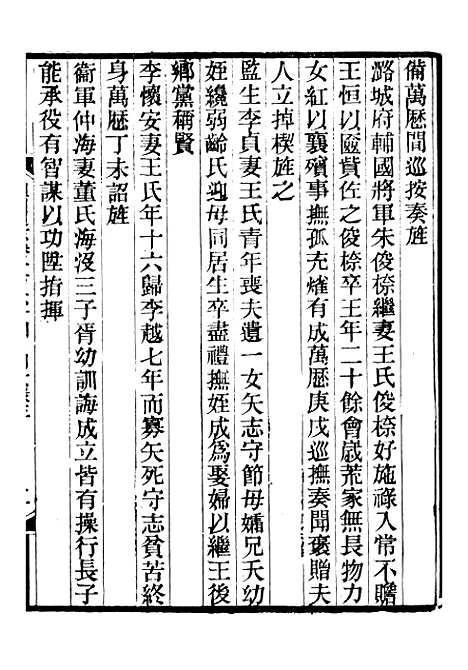 備萬厯間巡按奏旌
潞城府輔國將軍朱俊𣖔繼妻王氏俊𣖔好施祿入常不贍
王恒以匳貲佐之俊𣖔卒王年二十餘會歲荒家無長物力
女紅以襄殯事撫孤充𤐤有成萬厯庚戌巡撫奏聞褒贈夫
人立掉楔旌之
監生李貞妻王氏青年喪夫遺一女矢志守節毋嫣兄夭幼
姪纔弱齡氏迎毋同居生卒盡禮撫姪成爲娶婦以繼王後
鄉黨稱賢
李懷安妻王氏年十六歸李越七年而寡矢死守志貧苦終
身萬厯丁未詔旌
衞軍仲海妻董氏海沒三子胥幼訓誨成立皆有操行長子
能承役有智謀以功陞指揮